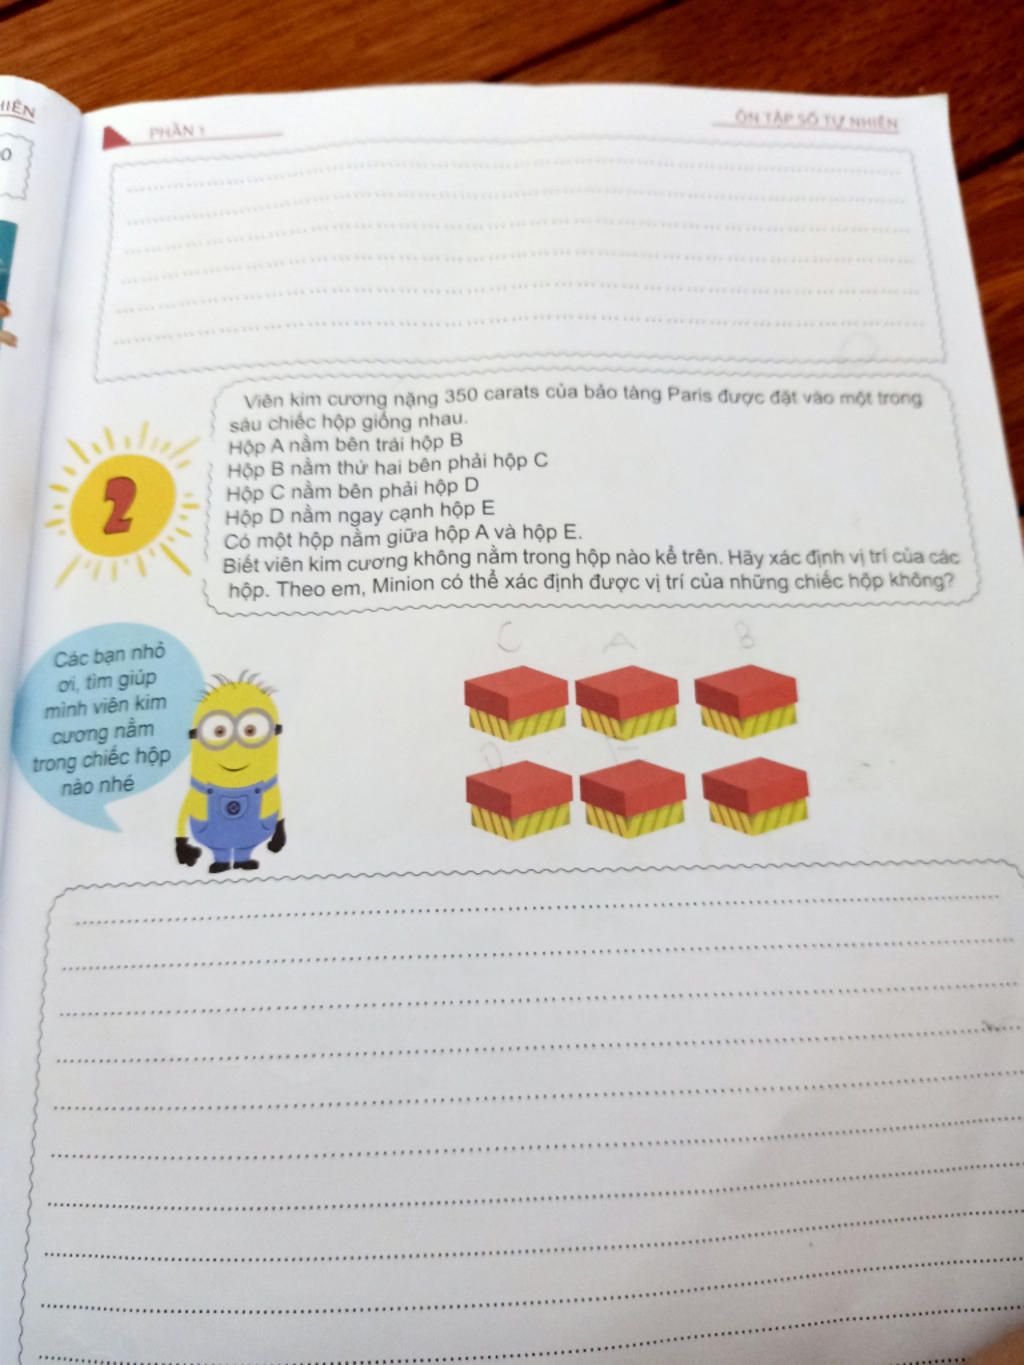 HIÊN
0
PHẦN 1
ÔN TẬP SỐ TỰ NHIÊN
Viên kim cương nặng 350 carats của bảo tàng Paris được đặt vào một trong
sáu chiếc hộp giống nhau.
Hộp A nằm bên trái hộp B
Hộp B nằm thứ hai bên phải hộp C
Hộp C nằm bên phải hộp D
Hộp D nằm ngay cạnh hộp E
Có một hộp nằm giữa hộp A và hộp E.
Biết viên kim cương không nằm trong hộp nào kể trên. Hãy xác định vị trí của các
hộp. Theo em, Minion có thể xác định được vị trí của những chiếc hộp không?
2
Các bạn nhỏ
ơi, tìm giúp
mình viên kim
cương nằm
trong chiếc hộp
nào nhé
C A B
D